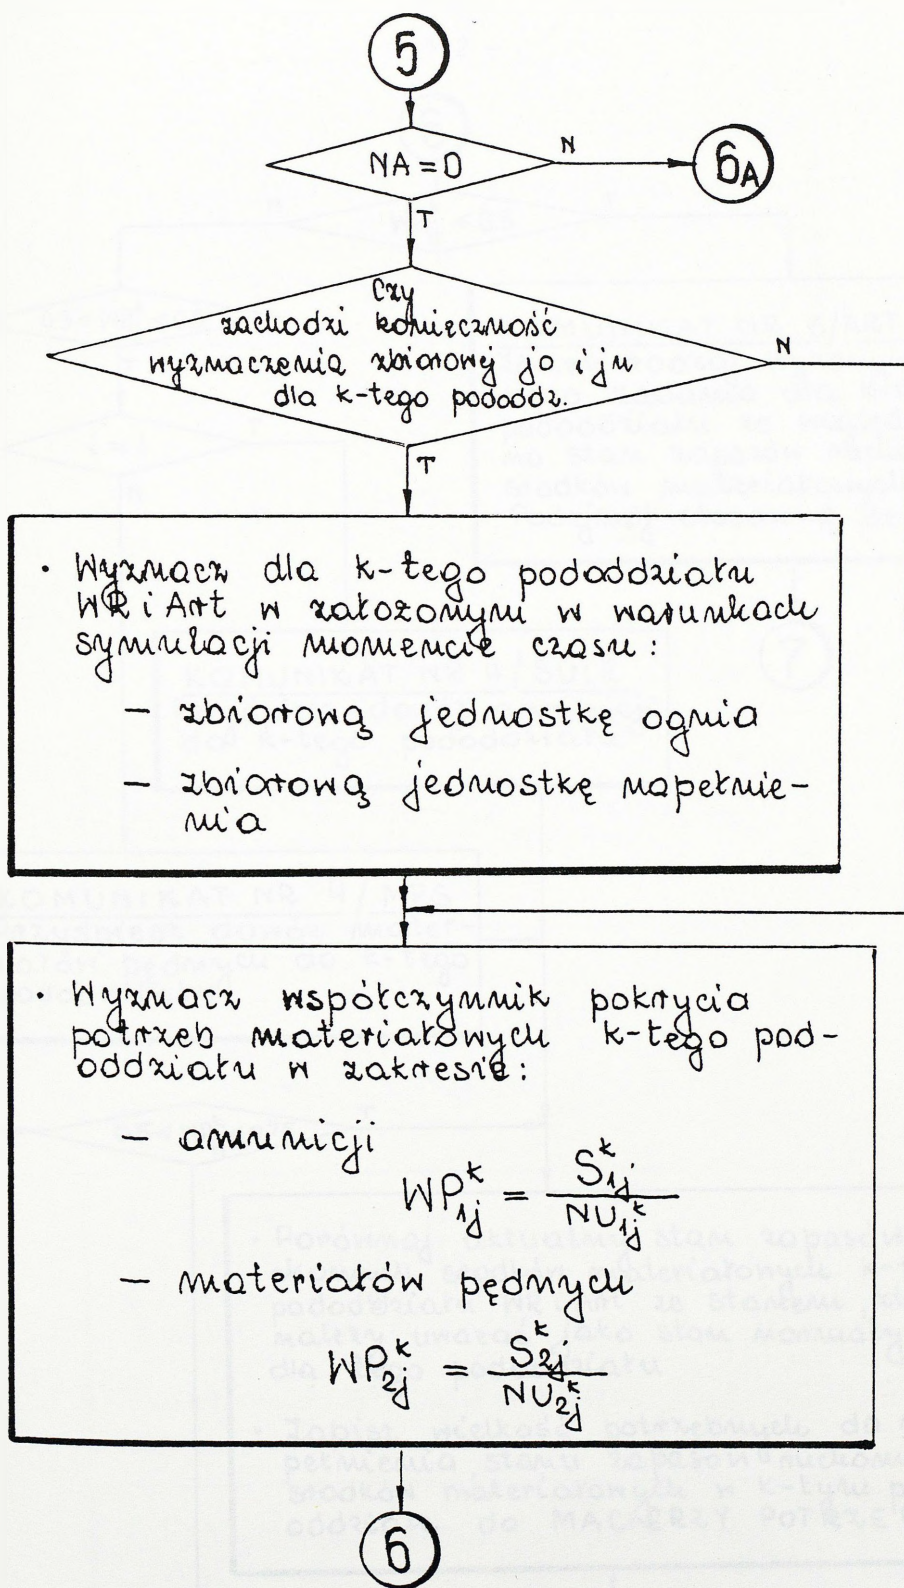 5
NA = 0
N
6A
T
Czy
zachodzi konieczność
wyznaczenia zbiorowej jo i jn
dla k-tego pododdz.
N
T
• Wyznacz dla k-tego pododdziału
WR i Art w założonym w warunkach
symulacji momencie czasu :
— zbiorową jednostkę ognia
— zbiorową jednostkę napełnie-
nia
• Wyznacz współczynnik pokrycia
potrzeb materiałowych k-tego pod-
oddziału w zakresie:
— amunicji
WP_{1j}^k = S_{1j}^k / NU_{1j}^k
— materiałów pędnych
WP_{2j}^k = S_{2j}^k / NU_{2j}^k
6